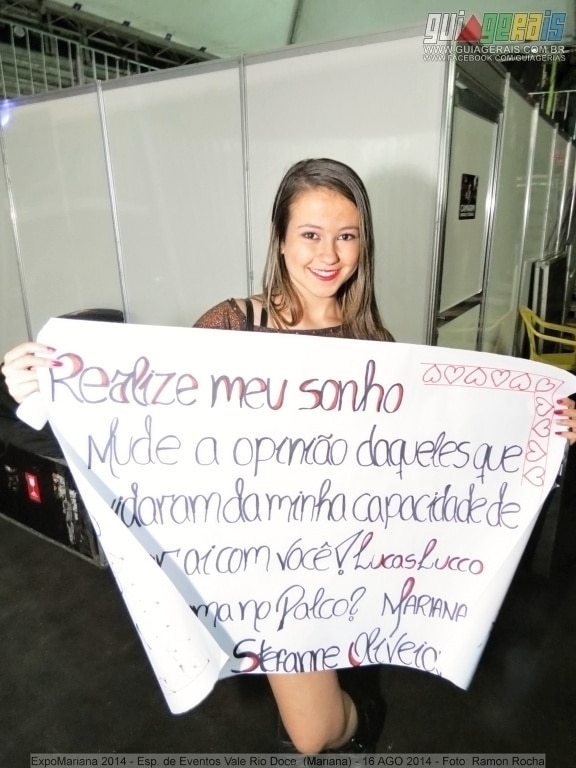 guiagerais
WWW.GUIAGERAIS.COM.BR
WWW.FACEBOOK.COM/GUIAGERIAS
Realize meu sonho
Mude a opinião daqueles que
da minha capacidade de
com você! Lucas Lucco
no Palco? MARIANA
Stefanne Oliveira
ExpoMariana 2014 - Esp. de Eventos Vale Rio Doce (Mariana) - 16 AGO 2014 - Foto Ramon Rocha